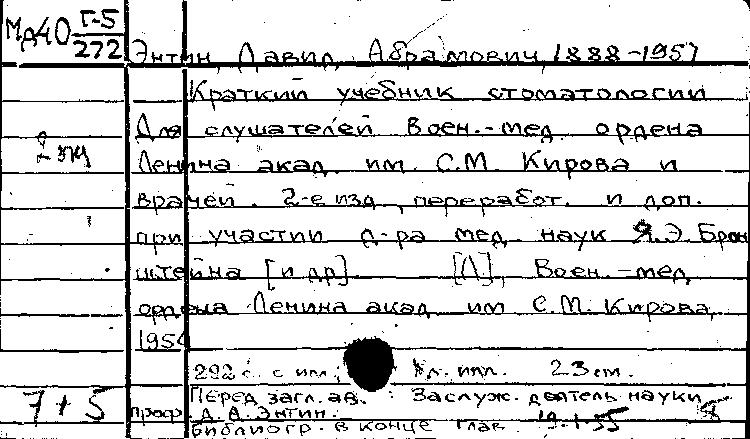 МД40 Г-5
272
Энтин, Давид Абрамович, 1888-1957
Краткий учебник стоматологии
Для слушателей Воен.-мед. ордена
2 эк
Ленина акад. им. С.М. Кирова и
врачей. 2-е изд., переработ. и доп.
при участии д-ра мед. наук Я.Э. Брон
штейна [и др]. [Л], Воен.-мед.
ордена Ленина акад им С.М. Кирова,
1954
292 с. с илл.; вл. илл. 23 см.
7+5
Перед загл. ав.: Заслуж. деятель науки
проф. Д. А. Энтин.
Библиогр. в конце глав. 19.1.55